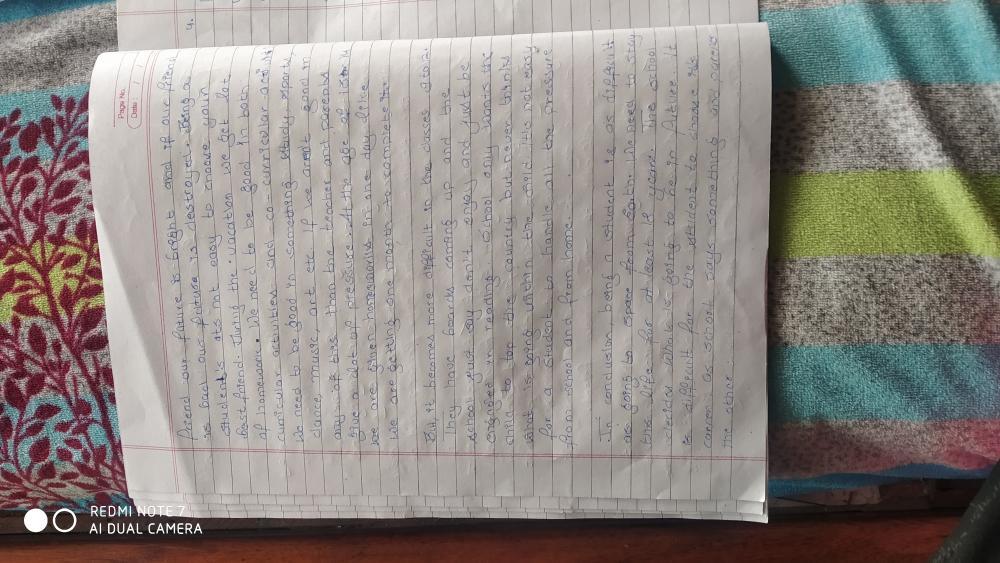 4.
Page No.
Date
friend our future is bright and if our friend
is bad our future is destroyed. Being a
student's its not easy to choose your
best friend. During the vacation we get lot
of homework. We need to be good in both
curricular activities and co-curricular
We need to be good in something sports,
dance, music, art etc. If we aren't good in
any of this than the teacher and parents
give a lot of pressure. At the age of
we are given homeworks in one day like
we are getting one month to complete the.
But it becomes more difficult in the classes
They have boards coming up and the
school just say don't enjoy and just be
engaged in reading. School only wants the
child to top the country but never thinks
what is going within the child. It's not easy
for a student to handle all the pressure
from school and from home.
In conclusion, being a student is as difficult
as going to space from Earth. He need to stay
this life for at least 18 years. The school
decides what he is going to be in future. It
is difficult for the student to choose
career as school says something and parents
the other.
REDMI NOTE 7
AI DUAL CAMERA